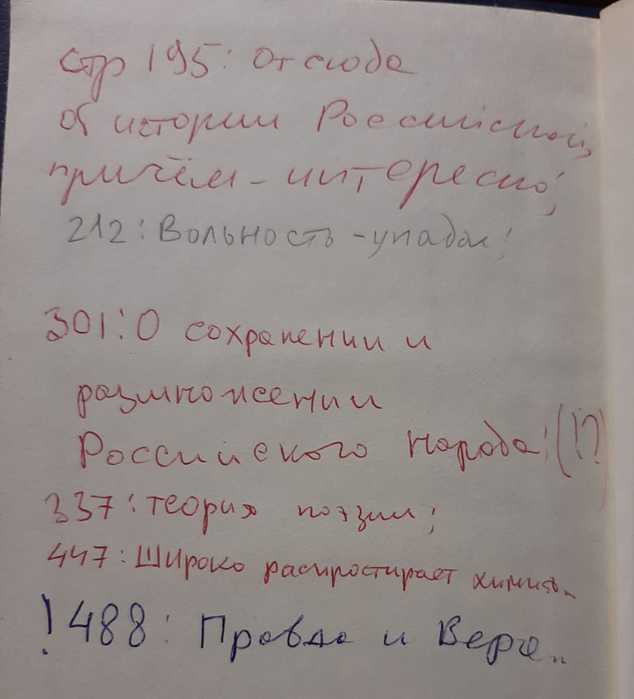 стр 195: Отсюда
об истории Российской,
причём - интересно;
212: Вольность - упадок;
301: О сохранении и
размножении
Российского народа; (!?)
337: теория поэзии;
447: Широко распростирает химия..
! 488: Правда и Вера..